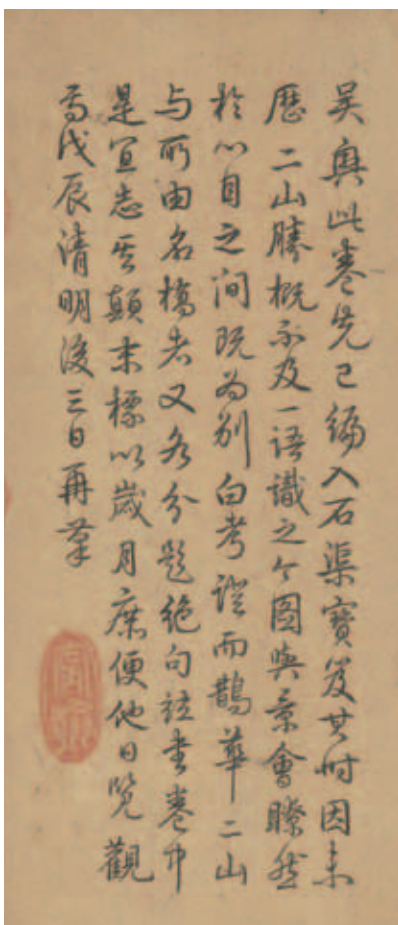 吴興此卷先已編入石渠寶笈其時因未
歷二山勝概不及一語識之今圖與景會瞭然
於心目之間既為別白考證而鵲華二山
与所由名橋者又各分題絶句竝書卷中
是宜志其顛末標以歲月庶便他日覽觀
焉戊辰清明後三日再筆